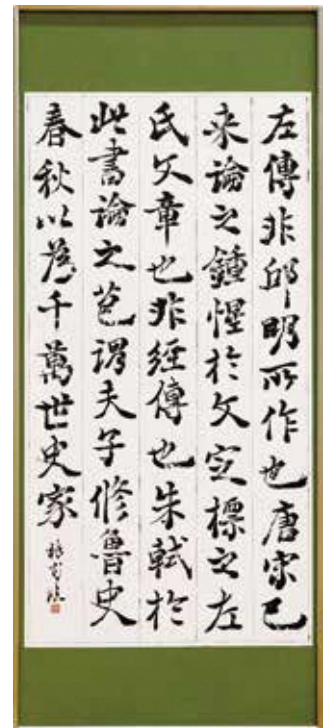 左傳非邱明所作也唐宋已
来論之鍾惺於文定標之左
氏文章也非經傳也朱軾於
此書論之芭謂夫子修魯史
春秋以為千萬世史家